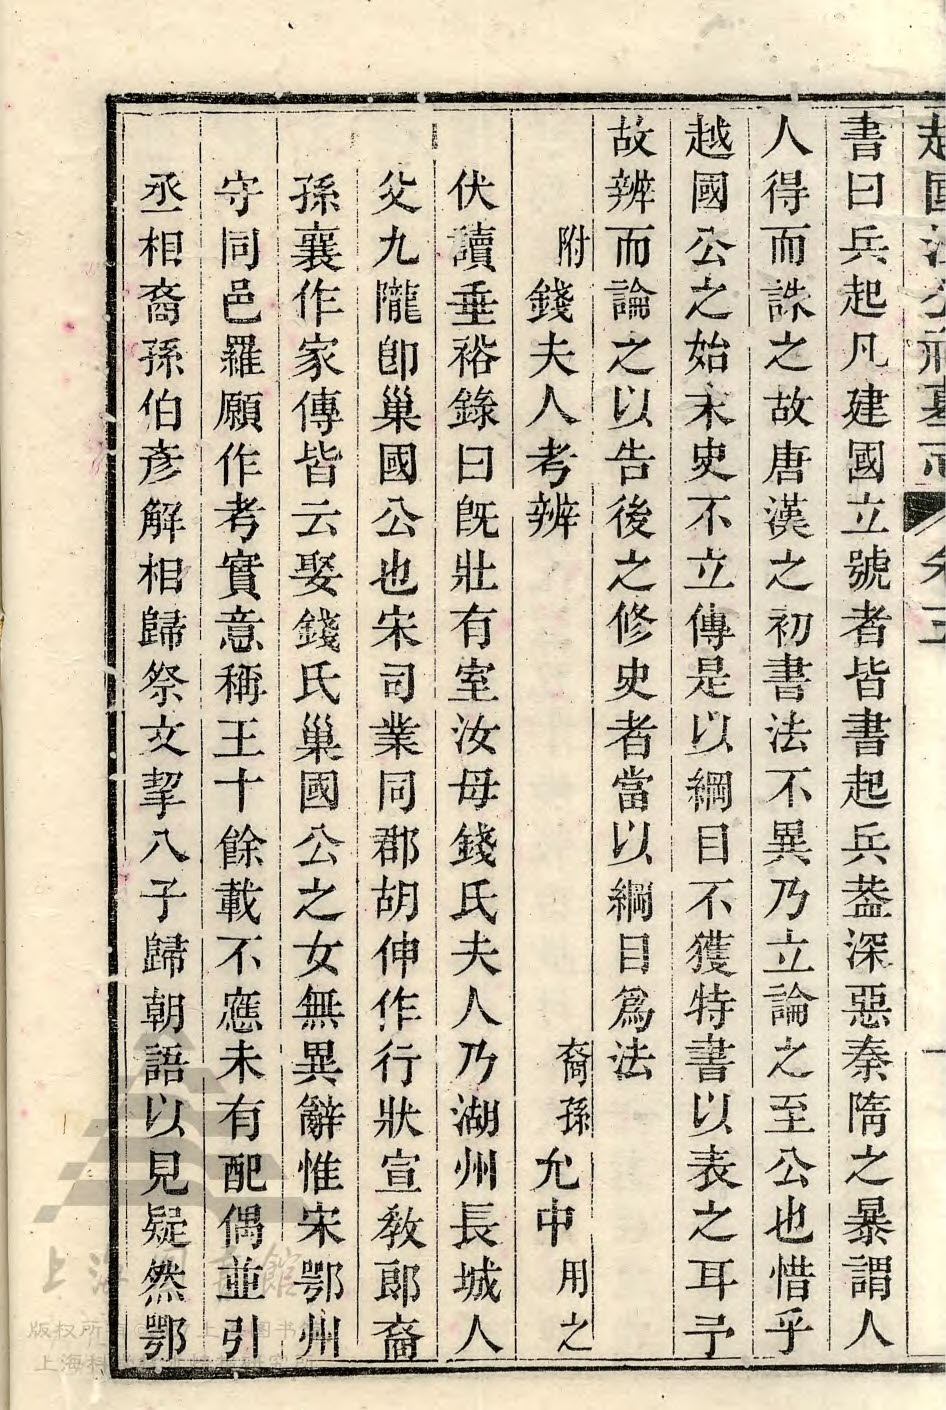 越國汪公祠墓志 卷三 一
書曰兵起凡建國立號者皆書起兵葢深惡秦隋之暴謂人
人得而誅之故唐漢之初書法不異乃立論之至公也惜乎
越國公之始末史不立傳是以綱目不獲特書以表之耳予
故辨而論之以告後之修史者當以綱目爲法
附錢夫人考辨 裔孫允中用之
伏讀垂裕錄曰旣壯有室汝母錢氏夫人乃湖州長城人
父九隴卽巢國公也宋司業同郡胡伸作行狀宣敎郎裔
孫襄作家傳皆云娶錢氏巢國公之女無異辭惟宋鄂州
守同邑羅願作考實意稱王十餘載不應未有配偶並引
丞相裔孫伯彥解相歸祭文挈八子歸朝語以見疑然鄂
上海圖書館
版权所有 上海图书馆